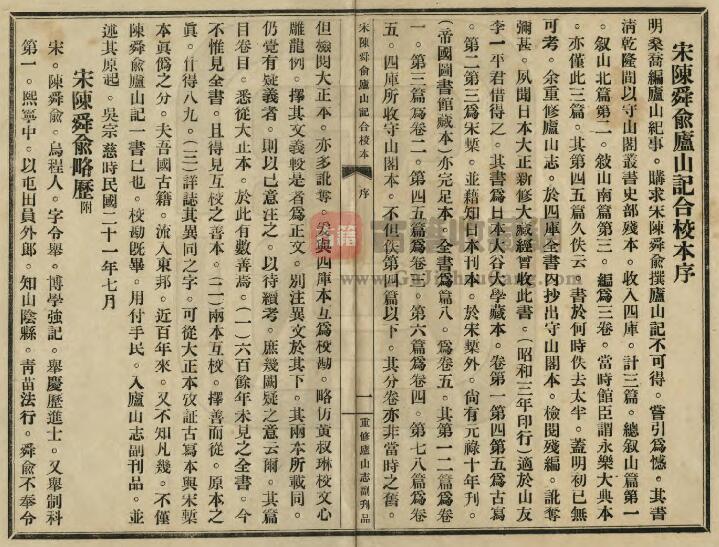 宋陳舜俞廬山記合校本序
明桑喬編廬山紀事。購求宋陳舜俞撰廬山記不可得。嘗引爲憾。其書
清乾隆間以守山閣叢書史部殘本。收入四庫。計三篇。總叙山篇第一
。叙山北篇第二。敍山南篇第三。編爲三卷。當時館臣謂永樂大典本
。亦僅此三篇。其第四五篇久佚云。書於何時佚去太半。蓋明初已無
可考。余重修廬山志。於四庫全書內抄出守山閣本。檢閱殘編。訛奪
彌甚。夙聞日本大正新修大藏經曾收此書。(昭和三年印行)適於山友
李一平君借得之。其書爲日本大谷大學藏本。卷第一第四第五爲古寫
。第二第三爲宋槧。並藉知日本刊本。於宋槧外。尙有元祿十年刋。
(帝國圖書館藏本)亦完足本。全書爲篇八。爲卷五。其第一二篇爲卷
一。第三篇爲卷二。第四五篇爲卷三。第六篇爲卷四。第七八篇爲卷
五。四庫所收守山閣本。不但佚第四篇以下。其分卷亦非當時之舊。
宋陳舜俞廬山記合校本
序
一
重修廬山志副刋品
但檢閱大正本。亦多訛奪。爰與四庫本互爲校勘。略仿黃叔琳校文心
雕龍例。擇其文義較是者爲正文。別注異文於其下。其兩本所載同。
仍覺有疑義者。則以已意注之。以待續考。庶幾闕疑之意云爾。其篇
目卷目。悉從大正本。於此有數善焉。(一)六百餘年未見之全書。今
不惟見全書。且得見互校之善本。(二)兩本互校。擇善而從。原本之
眞。什得八九。(三)詳誌其異同之字。可從大正本攷証古寫本與宋槧
本眞僞之分。夫吾國古籍。流入東邦。近百年來。又不知凡幾。不僅
陳舜俞廬山記一書已也。校勘旣畢。用付手民。入廬山志副刊品。並
述其原起。吳宗慈時民國二十一年七月
宋陳舜俞略歷附
宋。陳舜俞。烏程人。字令舉。博學強記。舉慶歷進士。又舉制科
第一。熙寧中。以屯田員外郎。知山陰縣。靑苗法行。舜俞不奉令